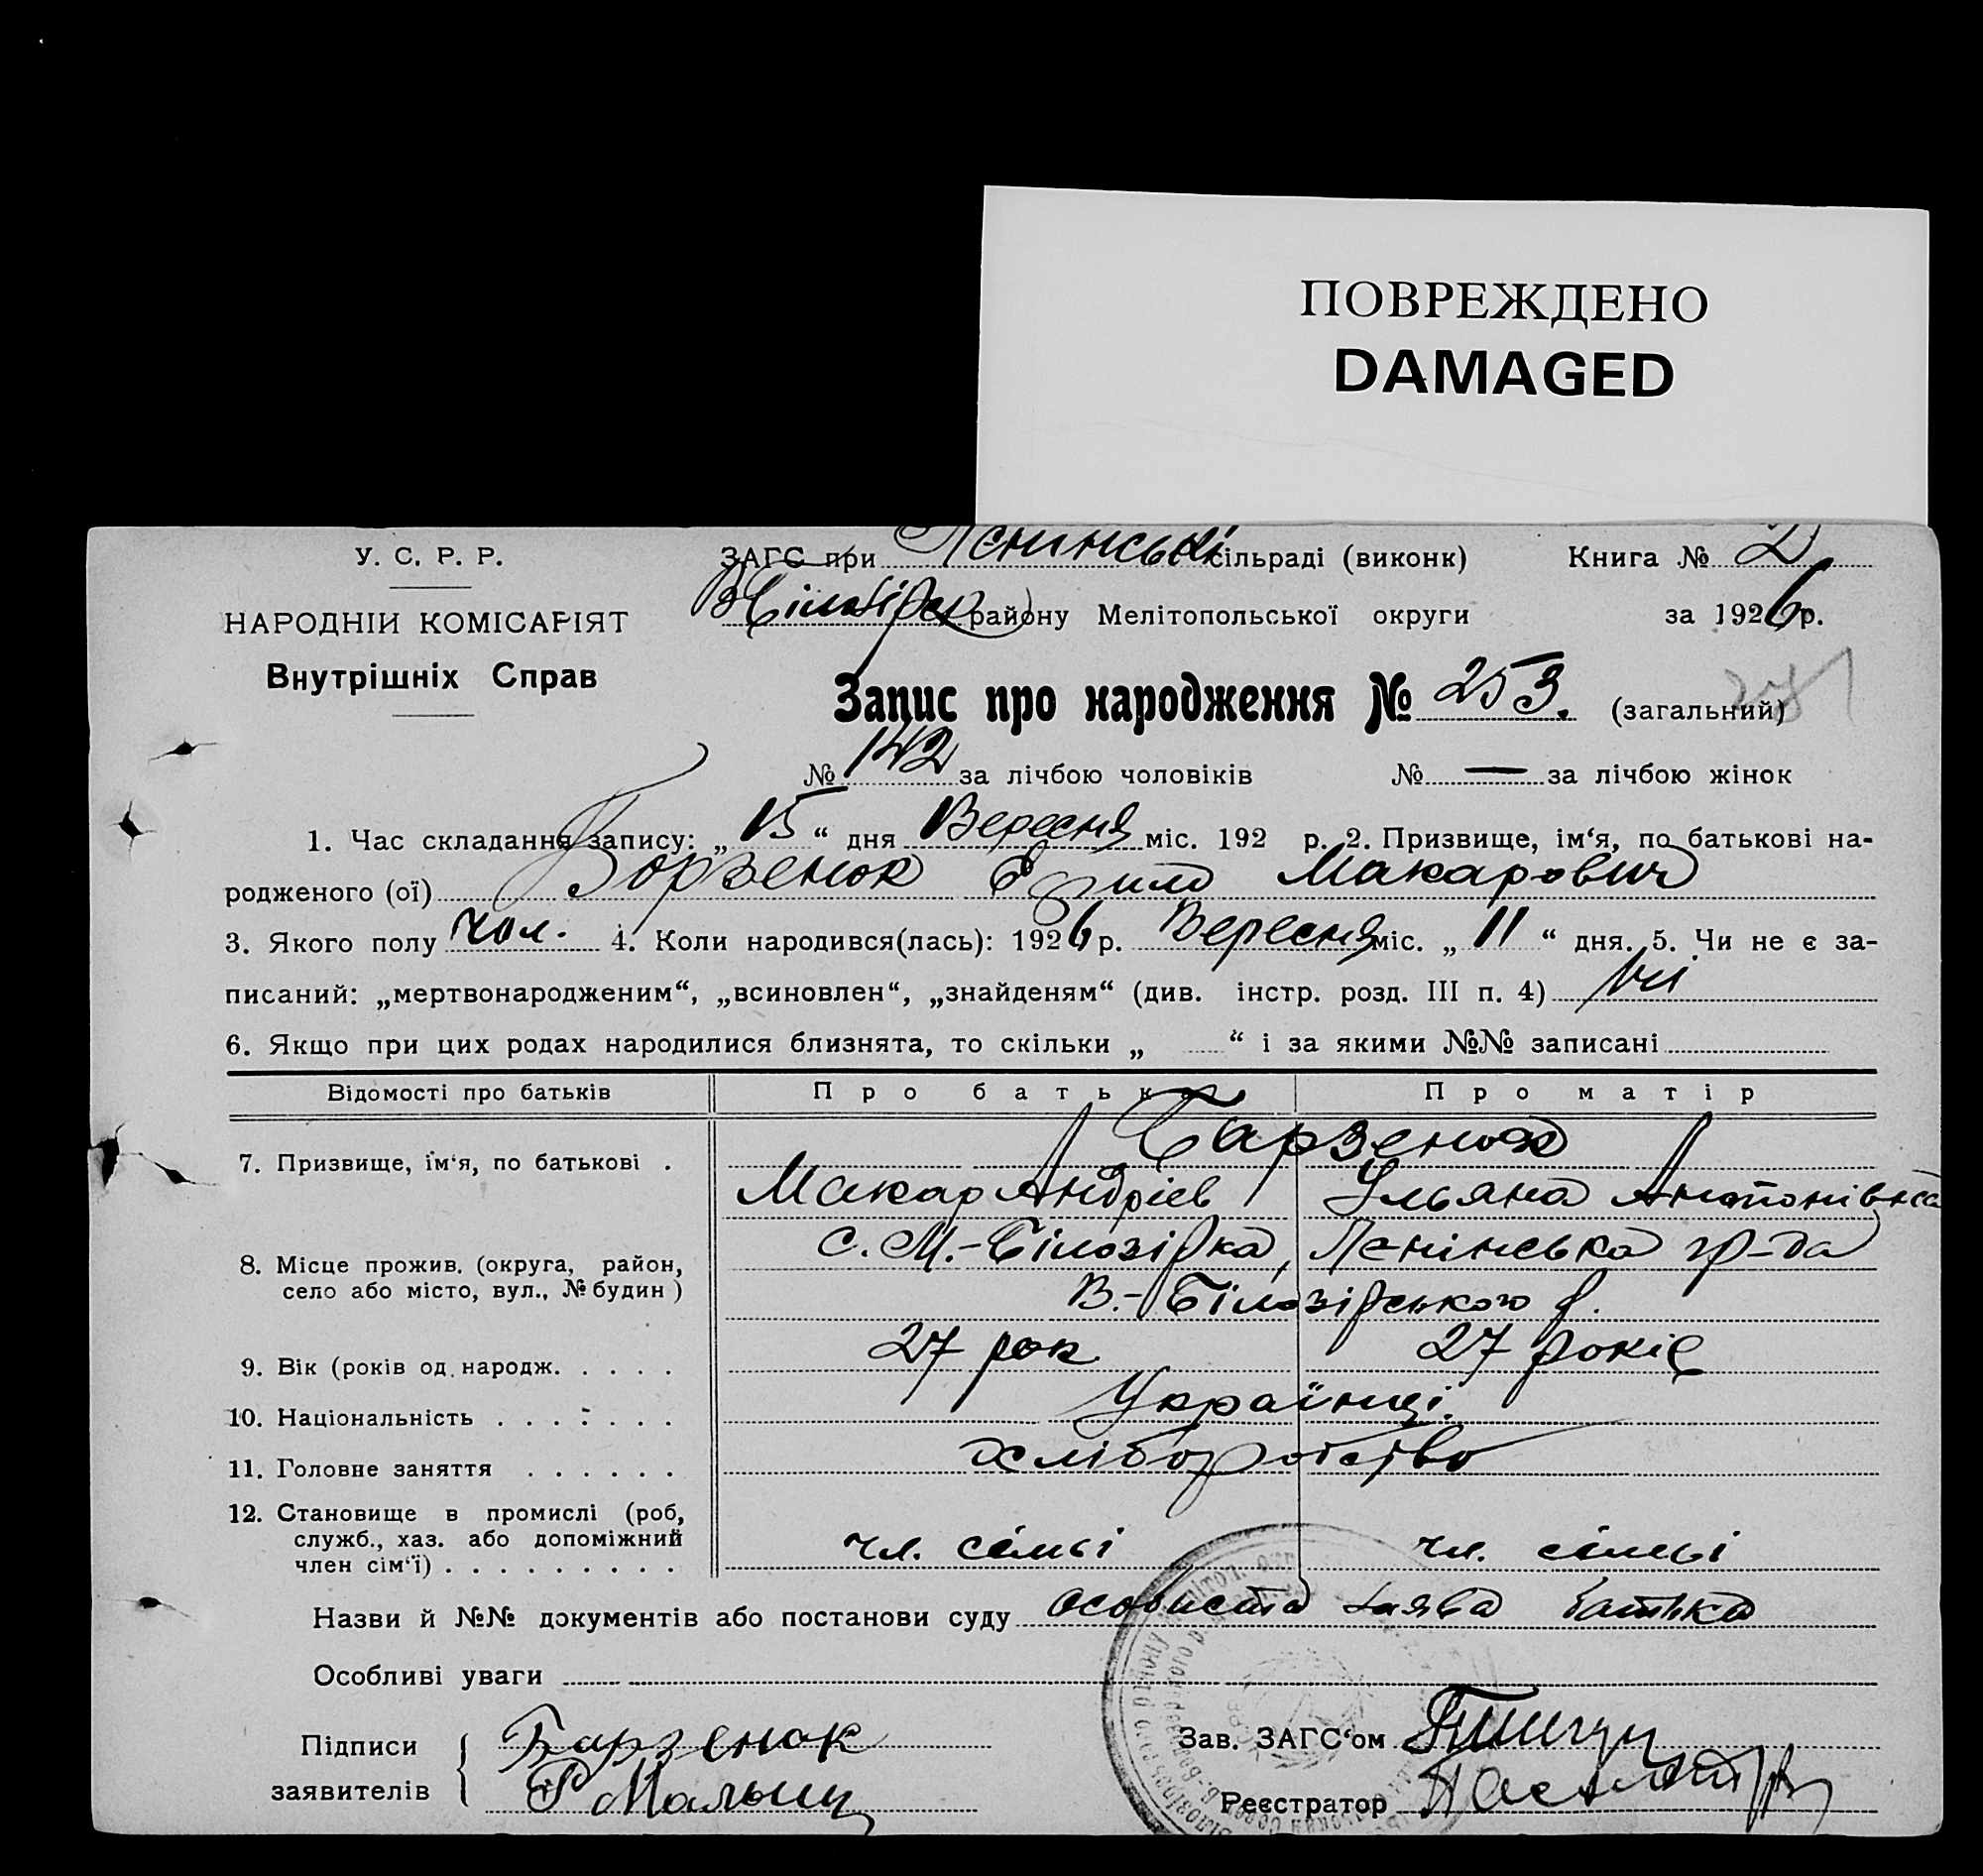 ПОВРЕЖДЕНО
DAMAGED
У. С. Р. Р.
ЗАГС при Ленинські сільраді (виконк) Книга № 2
НАРОДНІЙ КОМІСАРІЯТ
району Мелітопольської округи за 1926 р.
Внутрішніх Справ
Запис про народження № 253. (загальний)
№ 142 за лічбою чоловіків № — за лічбою жінок
1. Час складання запису: „15“ дня Вересня міс. 192 р. 2. Призвище, ім‘я, по батькові на-
родженого (ої) Борзенок Макарович
3. Якого полу чол. 4. Коли народився(лась): 1926 р. Вересня міс. „11“ дня. 5. Чи не є за-
писаний: „мертвонародженим“, „всиновлен“, „знайденям“ (див. інстр. розд. III п. 4) ні
6. Якщо при цих родах народилися близнята, то скільки „ “ і за якими №№ записані
Відомості про батьків Про батька Про матір
7. Призвище, ім‘я, по батькові . Барзенок
Макар Андріев Ульяна Антонівна
8. Місце прожив. (округа, район, село або місто, вул., № будин) с. М.-Білозірка, Ленінська гр-да
В.-Білозірського р.
9. Вік (років од народж. . . . . 27 рок 27 років
10. Національність . . . . . . . Українці.
11. Головне заняття . . . . . . хліборобство
12. Становище в промислі (роб, служб., хаз. або допоміжний член сім‘ї) . . . . . . . . . чл. сімьі чл. сімьі
Назви й №№ документів або постанови суду особиста заява батька
Особливі уваги
Підписи заявителів Барзенок
Зав. ЗАГС‘ом
Реєстратор